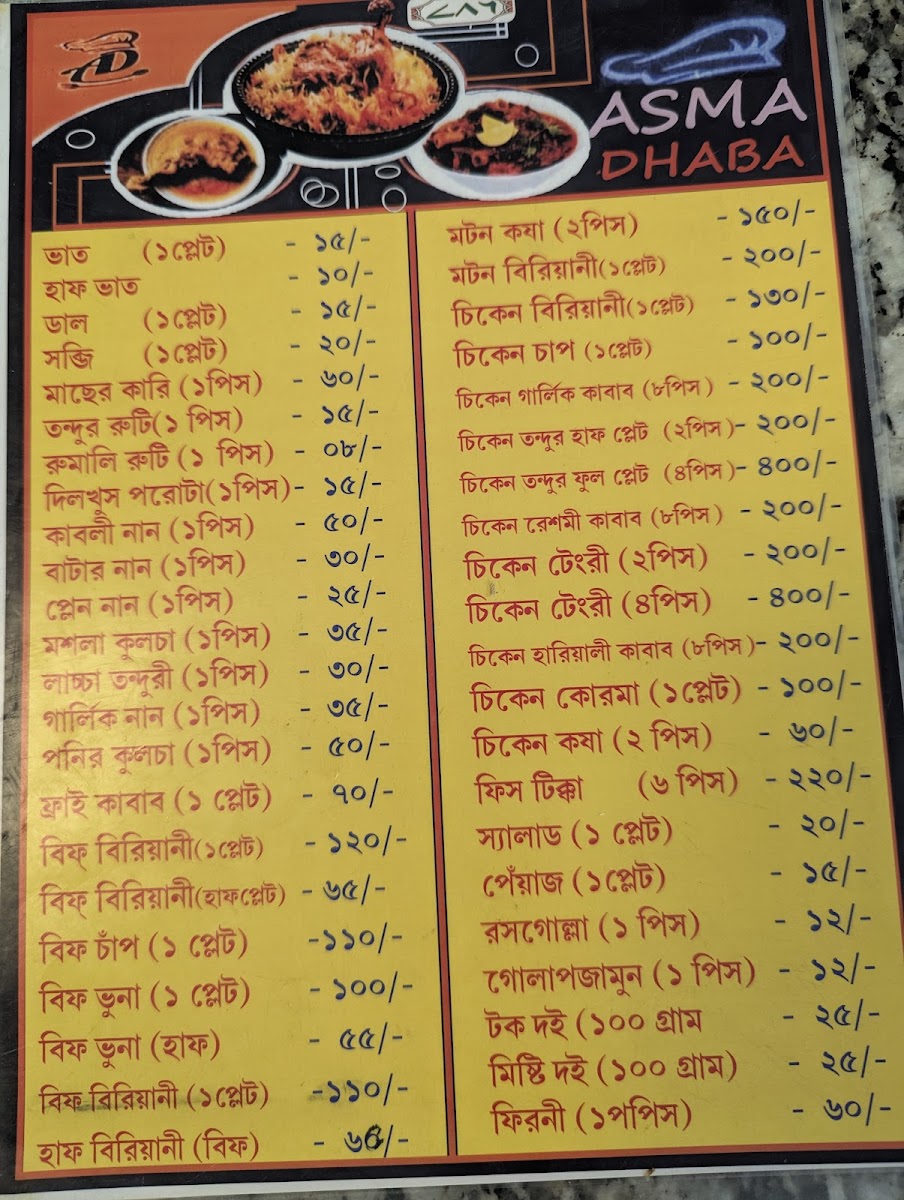 ASMA
DHABA
ভাত (১প্লেট) - ১৫/-
হাফ ভাত - ১০/-
ডাল (১প্লেট) - ১৫/-
সব্জি (১প্লেট) - ২০/-
মাছের কারি (১পিস) - ৬০/-
তন্দুর রুটি(১ পিস) - ১৫/-
রুমালি রুটি (১ পিস) - ০৮/-
দিলখুস পরোটা(১পিস) - ১৫/-
কাবলী নান (১পিস) - ৫০/-
বাটার নান (১পিস) - ৩০/-
প্লেন নান (১পিস) - ২৫/-
মশলা কুলচা (১পিস) - ৩৫/-
লাচ্চা তন্দুরী (১পিস) - ৩০/-
গার্লিক নান (১পিস) - ৩৫/-
পনির কুলচা (১পিস) - ৫০/-
ফ্রাই কাবাব (১ প্লেট) - ৭০/-
বিফ্ বিরিয়ানী(১প্লেট) - ১২০/-
বিফ্ বিরিয়ানী(হাফপ্লেট) - ৬৫/-
বিফ চাঁপ (১ প্লেট) -১১০/-
বিফ ভুনা (১ প্লেট) - ১০০/-
বিফ ভুনা (হাফ) - ৫৫/-
বিফ বিরিয়ানী (১প্লেট) -১১০/-
হাফ বিরিয়ানী (বিফ) - ৬৫/-
মটন কষা (২পিস) - ১৫০/-
মটন বিরিয়ানী(১প্লেট) - ২০০/-
চিকেন বিরিয়ানী(১প্লেট) - ১৩০/-
চিকেন চাপ (১প্লেট) - ১০০/-
চিকেন গার্লিক কাবাব (৮পিস) - ২০০/-
চিকেন তন্দুর হাফ প্লেট (২পিস)- ২০০/-
চিকেন তন্দুর ফুল প্লেট (৪পিস)- ৪০০/-
চিকেন রেশমী কাবাব (৮পিস) - ২০০/-
চিকেন টেংরী (২পিস) - ২০০/-
চিকেন টেংরী (৪পিস) - ৪০০/-
চিকেন হারিয়ালী কাবাব (৮পিস)- ২০০/-
চিকেন কোরমা (১প্লেট) - ১০০/-
চিকেন কষা (২ পিস) - ৬০/-
ফিস টিক্কা (৬ পিস) - ২২০/-
স্যালাড (১ প্লেট) - ২০/-
পেঁয়াজ (১প্লেট) - ১৫/-
রসগোল্লা (১ পিস) - ১২/-
গোলাপজামুন (১ পিস) - ১২/-
টক দই (১০০ গ্রাম - ২৫/-
মিষ্টি দই (১০০ গ্রাম) - ২৫/-
ফিরনী (১পপিস) - ৬০/-